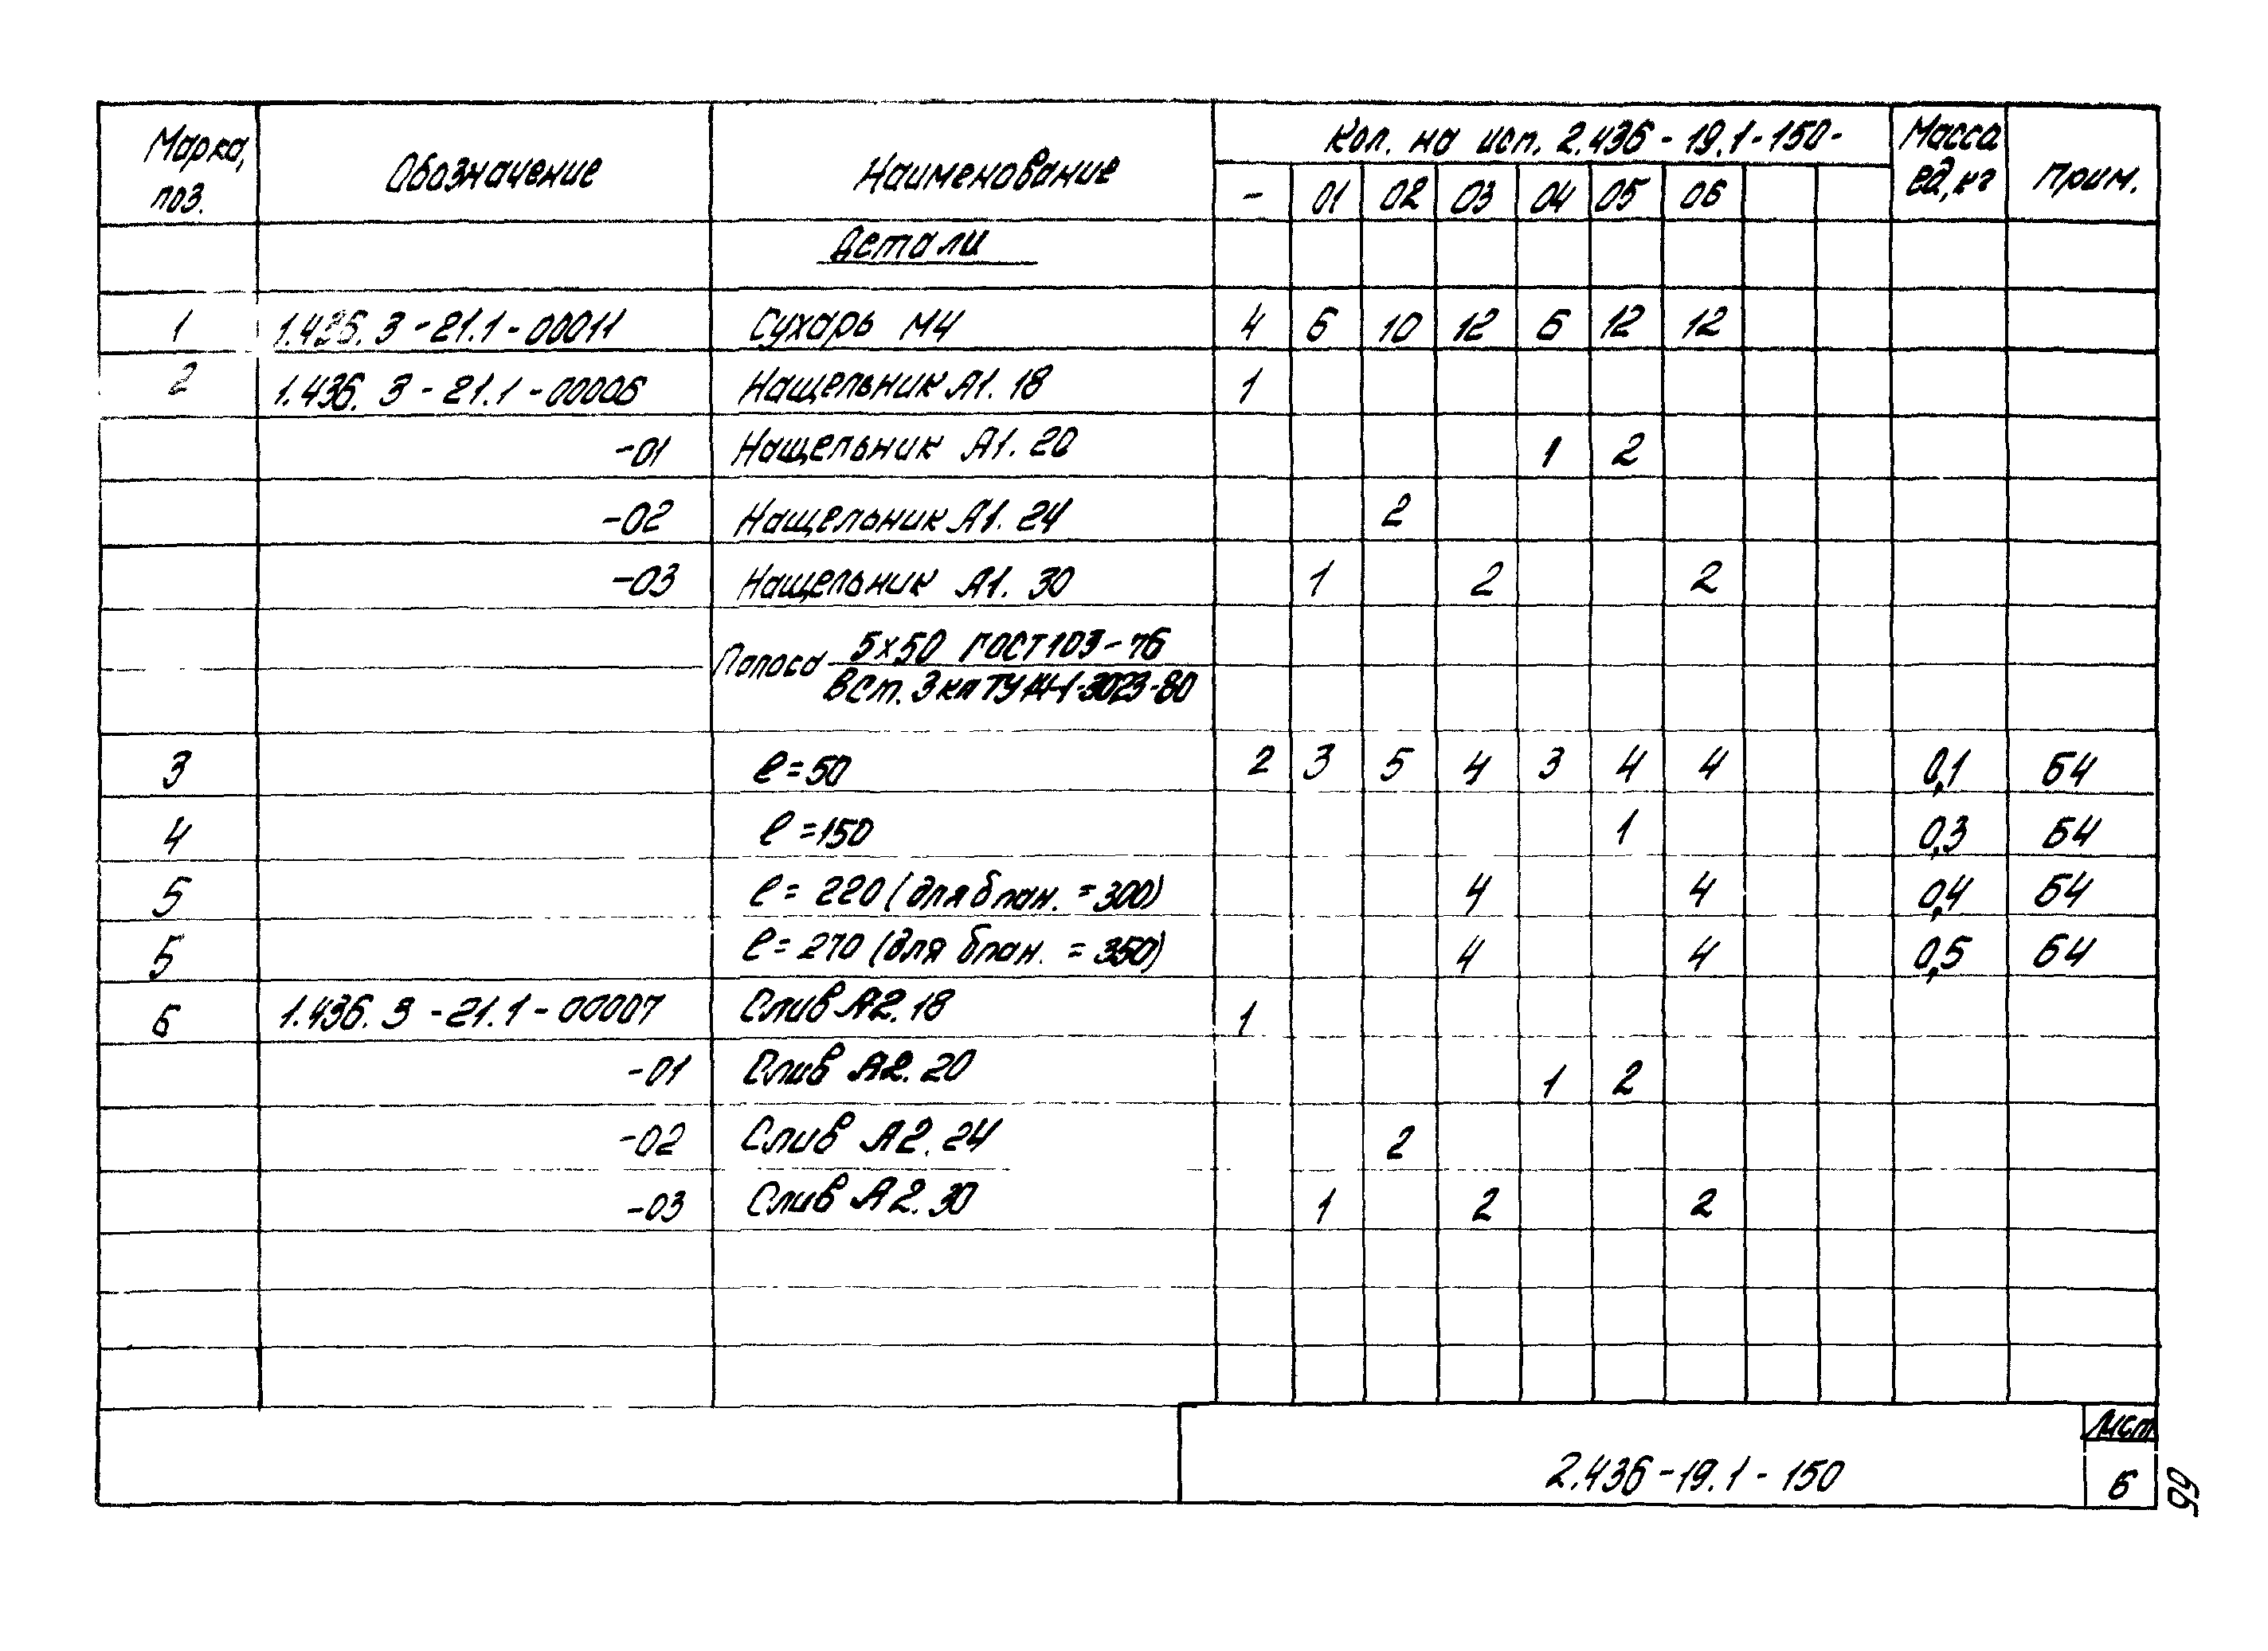 Марка, поз. Обозначение Наименование Кол. на исп. 2.436-19.1-150- Масса ед, кг Прим.
- 01 02 03 04 05 06
Детали
1 1.436.3-21.1-00011 Сухарь М4 4 6 10 12 6 12 12
2 1.436.3-21.1-00006 Нащельник А1.18 1
-01 Нащельник А1.20 1 2
-02 Нащельник А1.24 2
-03 Нащельник А1.30 1 2 2
Полоса 5х50 ГОСТ103-76
ВСт.3кп ТУ14-1-3023-80
3 ℓ=50 2 3 5 4 3 4 4 0,1 БЧ
4 ℓ=150 1 0,3 БЧ
5 ℓ=220 (для бпан.=300) 4 4 0,4 БЧ
5 ℓ=270 (для бпан.=350) 4 4 0,5 БЧ
6 1.436.3-21.1-00007 Слив А2.18 1
-01 Слив А2.20 1 2
-02 Слив А2.24 2
-03 Слив А2.30 1 2 2
2.436-19.1-150
Лист
6
99